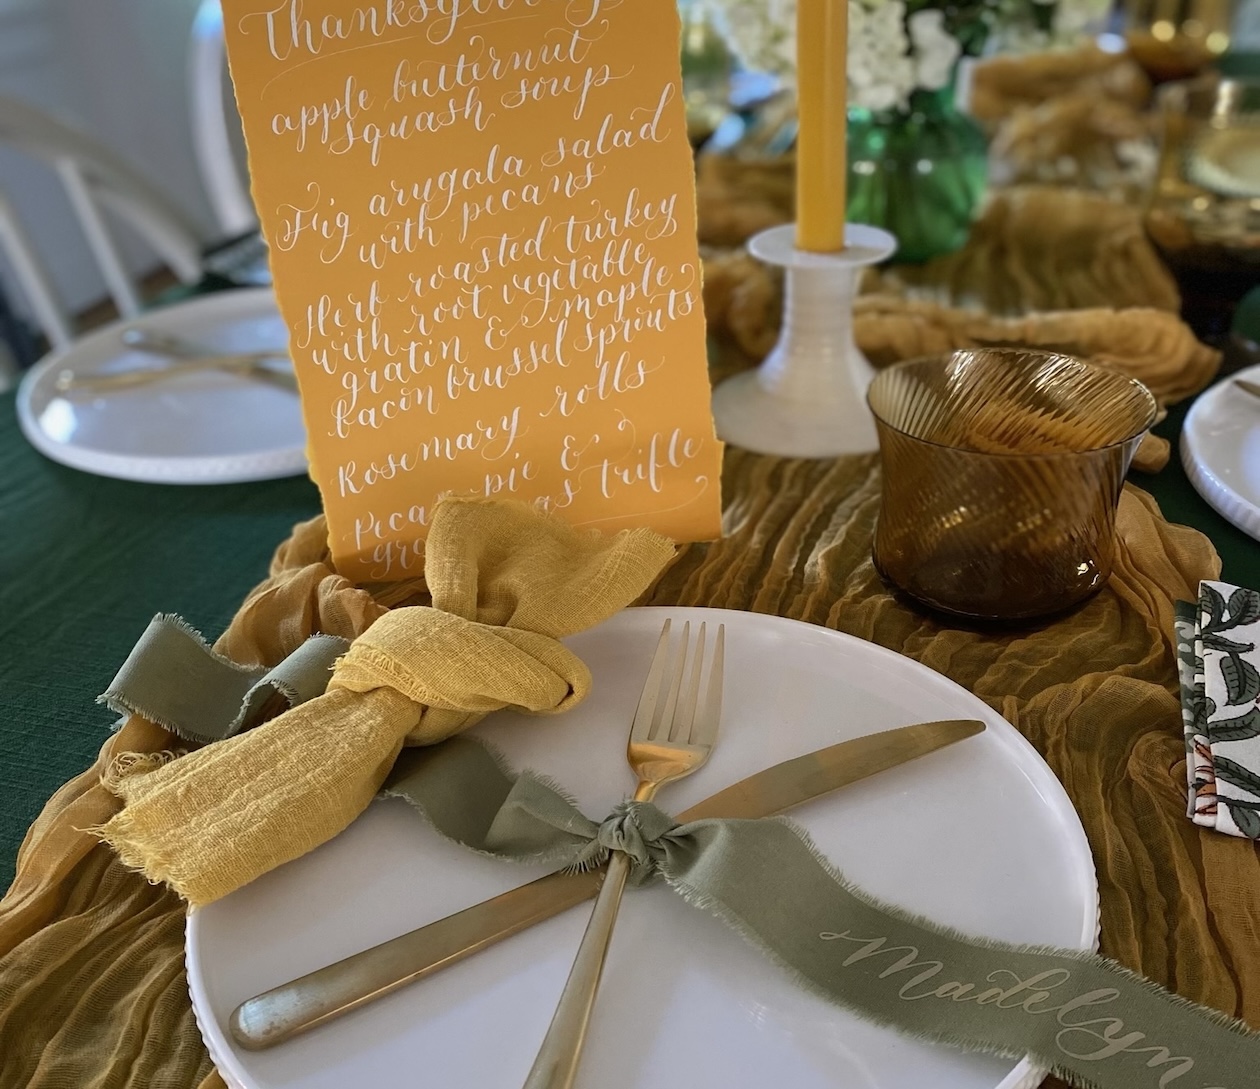 Thanksgiving
apple butternut
squash soup
Fig arugala salad
with pecans
Herb roasted turkey
with root vegetable
gratin & maple
bacon brussel sprouts
Rosemary rolls
pie &
trifle
Madelyn